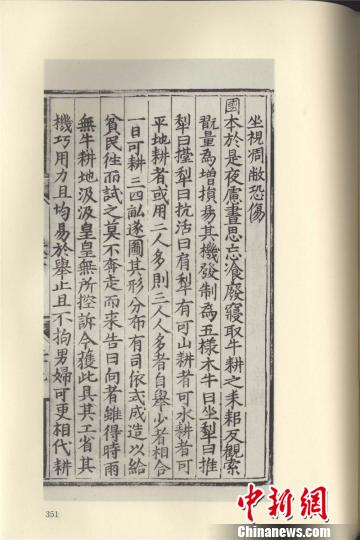 坐視凋敝恐傷
國本於是夜慮晝思忘飡廢寢取牛耕之耒耜反觀索
翫量為增損易其機發制為五樣木牛曰坐犁曰推
犁曰擡犁曰抗活曰肩犁有可山耕者可水耕者可
平地耕者或用二人多則三人人多者自舉少者相合
一日可耕三四畝遂圖其形分布有司依式成造以給
貧民徃而試之莫不奔走而來告曰向者雖得時雨
無牛耕地汲汲皇皇無所控訴今獲此具其工省其
機巧用力且均易於舉止且不拘男婦可更相代耕
351
中新网
www.chinanews.com